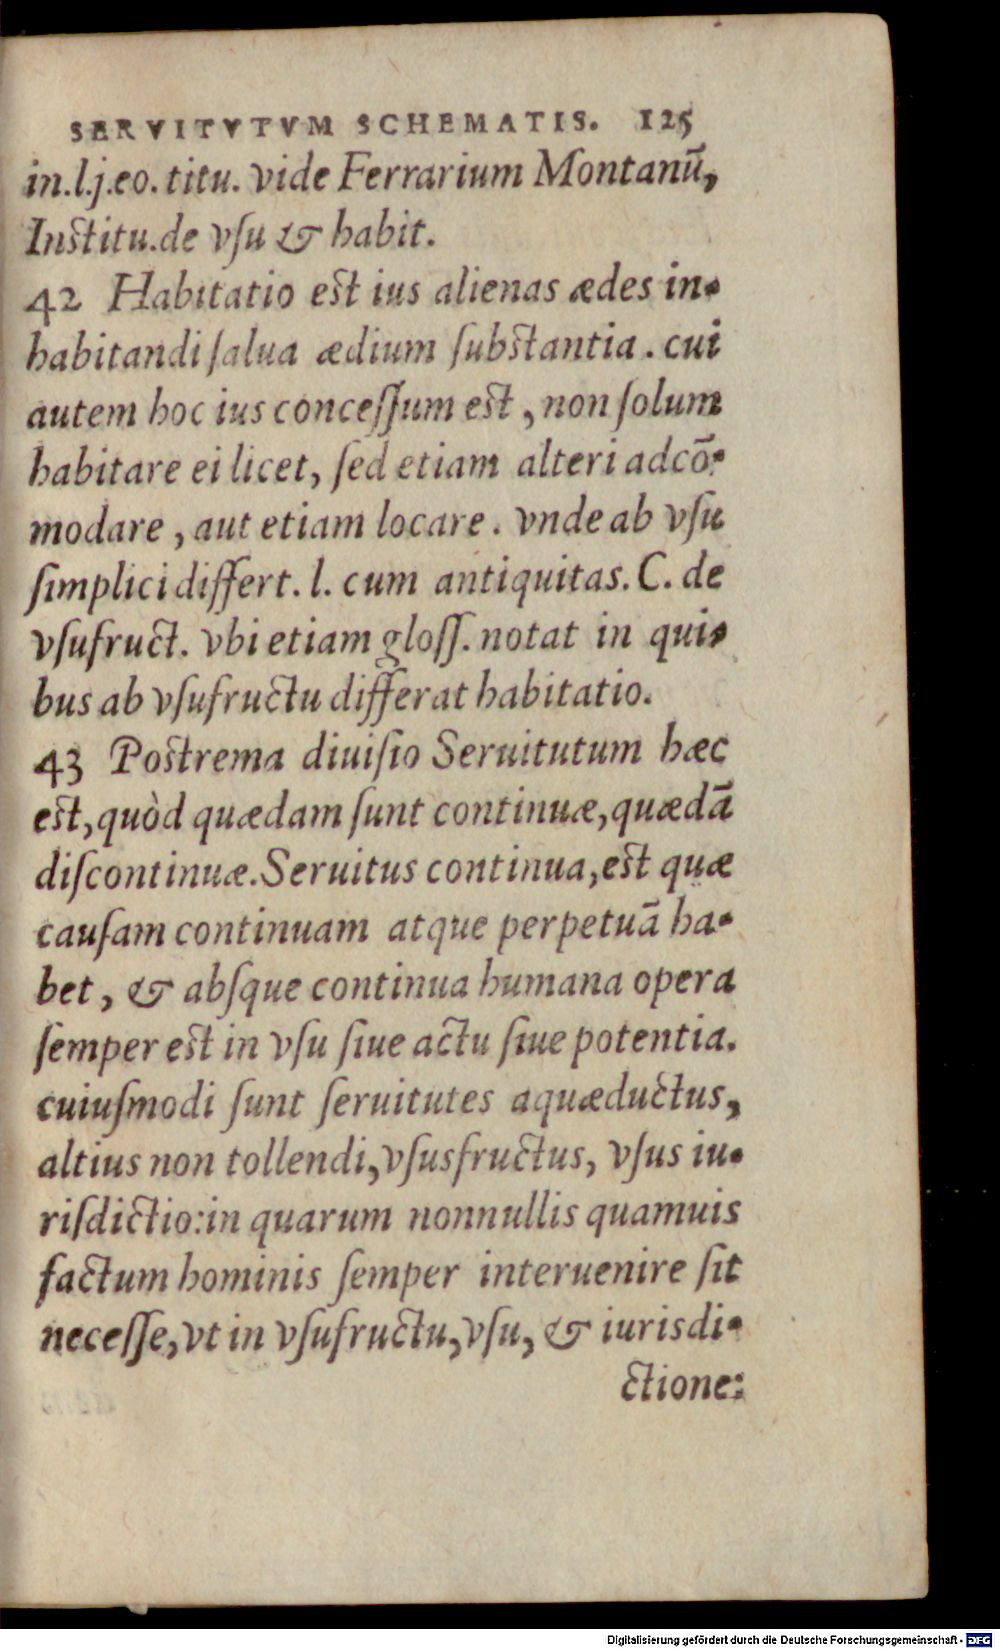 SERVITVTVM SCHEMATIS. 125
in.l.j.eo.titu. vide Ferrarium Montanū,
Institu.de vſu & habit.
42 Habitatio est ius alienas ædes in-
habitandi ſalua ædium ſubstantia. cui
autem hoc ius conceſſum est, non ſolum
habitare ei licet, ſed etiam alteri adcō-
modare, aut etiam locare. vnde ab vſu
ſimplici differt. l. cum antiquitas. C. de
vſufruct. vbi etiam gloſſ. notat in qui-
bus ab vſufructu differat habitatio.
43 Postrema diuiſio Seruitutum hæc
est, quòd quædam ſunt continuæ, quædā
diſcontinuæ. Seruitus continua, est quæ
cauſam continuam atque perpetuā ha-
bet, & abſque continua humana opera
ſemper est in vſu ſiue actu ſiue potentia.
cuiuſmodi ſunt ſeruitutes aquæductus,
altius non tollendi, vſusfructus, vſus iu-
riſdictio: in quarum nonnullis quamuis
factum hominis ſemper interuenire ſit
neceſſe, vt in vſufructu, vſu, & iurisdi-
ctione:
Digitalisierung gefördert durch die Deutsche Forschungsgemeinschaft - DFG